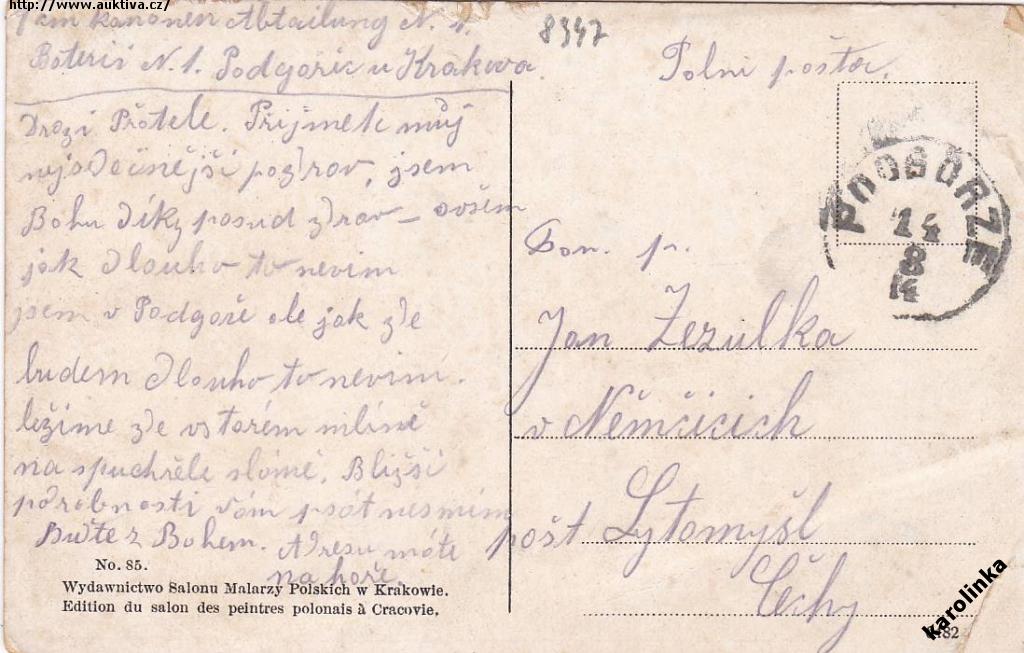 http://www.auktiva.cz/
kanonen Abtailung N. 1.
Baterii N.1. Podgořic u Krakova.
Drazí Přátele. Přijmete můj
nejsrdečnější pozdrav, jsem
Bohu díky posud zdrav – ovšem
jak dlouho to nevim
jsem v Podgoře ale jak zde
budem dlouho to nevim.
ležime zde vstarém mlíně
na spuchřele slámě. Bližší
podrobnosti vám psát nesmím
Buďte z Bohem. Adresu máte
na hoře.
No. 85.
Wydawnictwo Salonu Malarzy Polskich w Krakowie.
Edition du salon des peintres polonais à Cracovie.
8347
Polni pošta.
PODGÓRZE
14
8
14
Pan. p.
Jan Zezulka
v Němčicich
pošt Lytomyšl
Čechy
karolinka